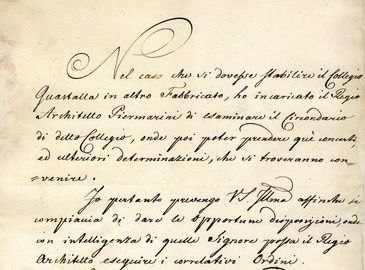 Nel caso che si dovesse stabilire il Collegio
Guastalla in altro Fabbricato, ho incaricato il Regio
Architetto Piermarini di esaminare il Circondario
di detto Collegio, onde poi poter prendere que' concerti,
ed ulteriori determinazioni, che si troveranno con=
=venire.
Io pertanto prevengo VS. Illma affinchè si
compiaccia di dare le opportune disposizioni, onde
con intelligenza di quelle Signore possa il Regio
Architetto eseguire i correlativi Ordini.